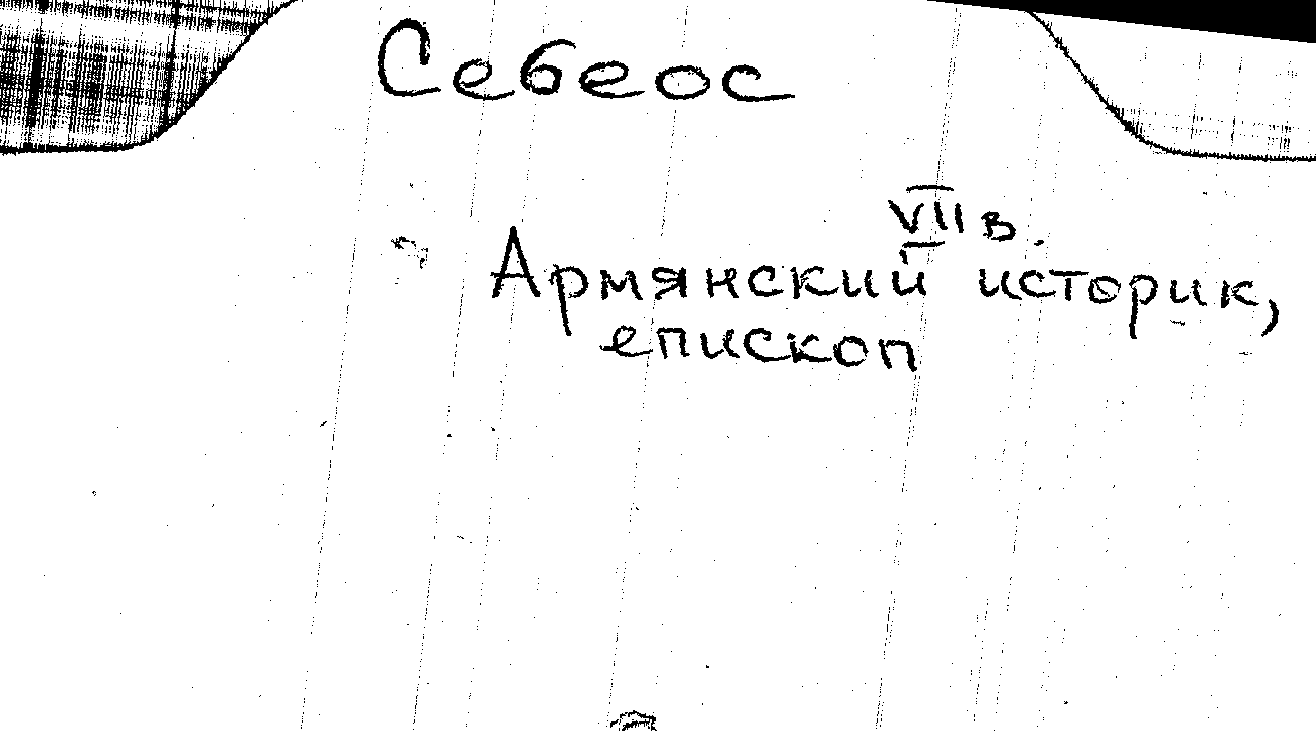 Себеос
VII в.
Армянский историк,
епископ